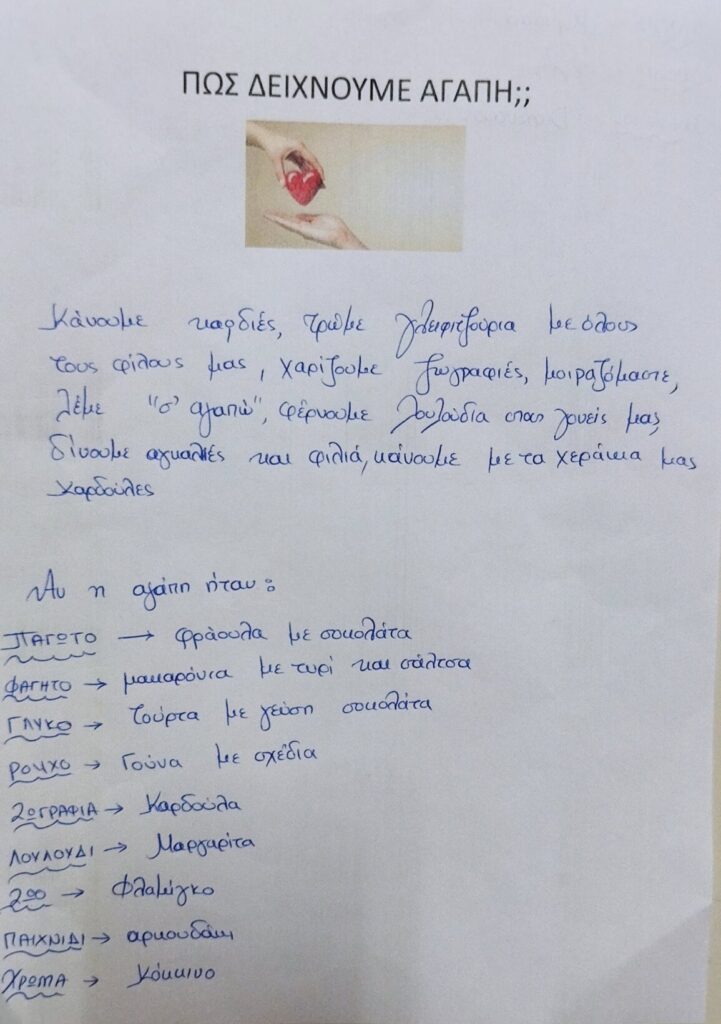 ΠΩΣ ΔΕΙΧΝΟΥΜΕ ΑΓΑΠΗ;;
Κάνουμε καρδιές, τρώμε γλειφιτζούρια με όλους
τους φίλους μας, χαρίζουμε ζωγραφιές, μοιραζόμαστε,
λέμε "σ' αγαπώ", φέρνουμε λουλούδια στους γονείς μας,
δίνουμε αγκαλιές και φιλιά, κάνουμε με τα χεράκια μας
καρδούλες
Αν η αγάπη ήταν:
ΠΑΓΩΤΟ → φράουλα με σοκολάτα
ΦΑΓΗΤΟ → μακαρόνια με τυρί και σάλτσα
ΓΛΥΚΟ → Τούρτα με γεύση σοκολάτα
ΡΟΥΧΟ → Γούνα με σχέδια
ΖΩΓΡΑΦΙΑ → Καρδούλα
ΛΟΥΛΟΥΔΙ → Μαργαρίτα
ΖΩΟ → Φλαμίγκο
ΠΑΙΧΝΙΔΙ → αρκουδάκι
ΧΡΩΜΑ → Κόκκινο